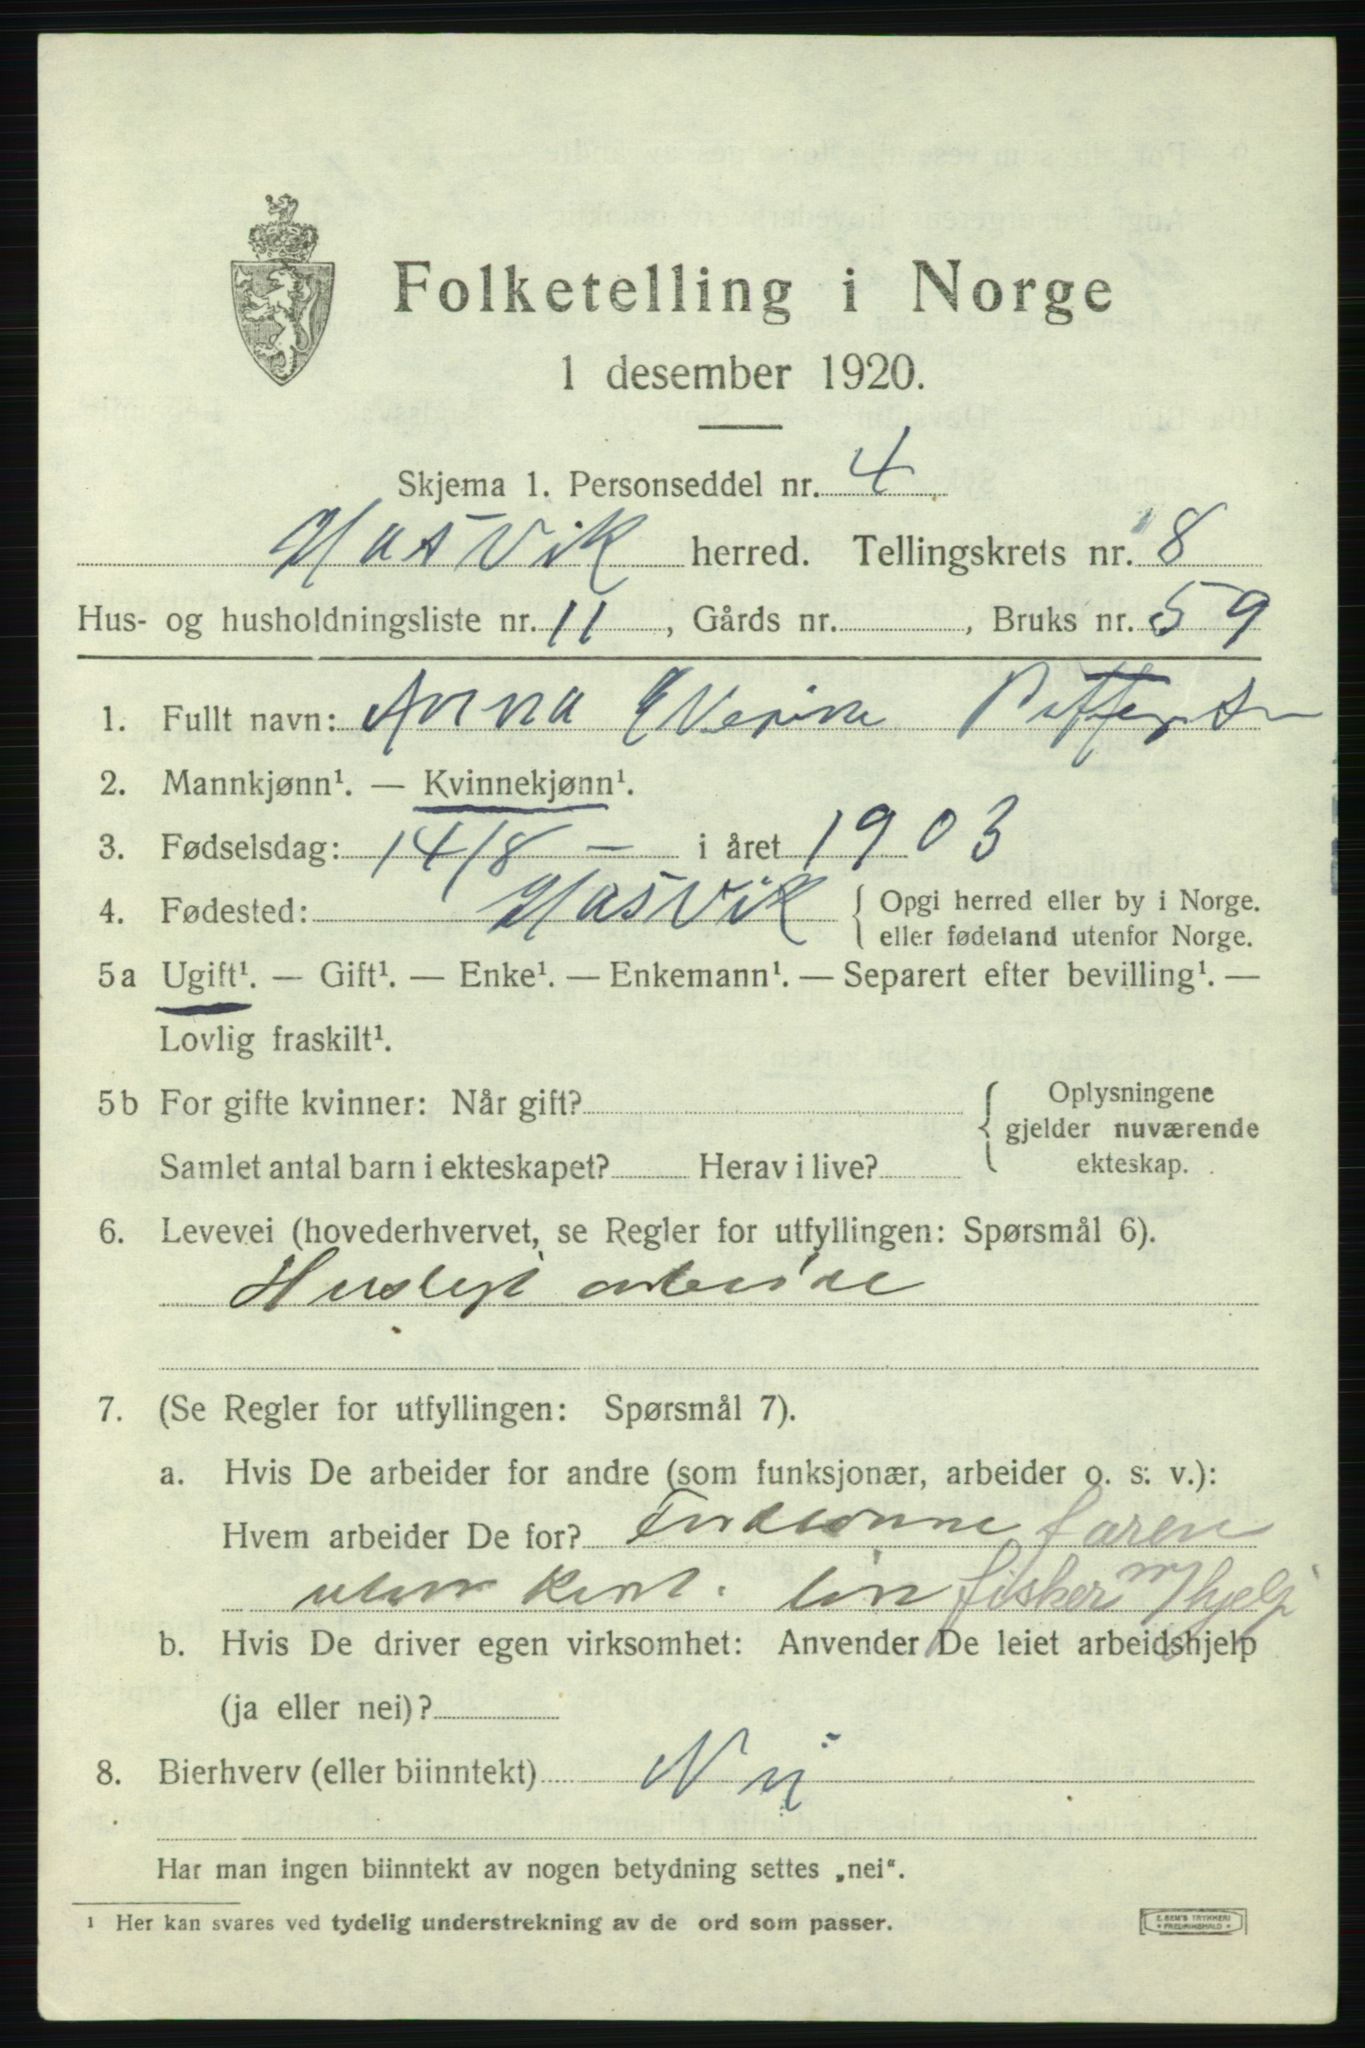 Folketelling i Norge
1 desember 1920.
Skjema 1. Personseddel nr. 4
Hasvik herred. Tellingskrets nr. 8
Hus- og husholdningsliste nr. 11, Gårds nr. , Bruks nr. 59
1. Fullt navn: Anna
2. Mannkjønn¹. — Kvinnekjønn¹.
3. Fødselsdag: 14/8 – i året 1903
4. Fødested: Hasvik { Opgi herred eller by i Norge.
eller fødeland utenfor Norge.
5a Ugift¹. — Gift¹. — Enke¹. — Enkemann¹. — Separert efter bevilling¹. —
Lovlig fraskilt¹.
5b For gifte kvinner: Når gift? { Oplysningene
gjelder nuværende
Samlet antal barn i ekteskapet? Herav i live? ekteskap.
6. Levevei (hovederhvervet, se Regler for utfyllingen: Spørsmål 6).
Husligt arbeide
7. (Se Regler for utfyllingen: Spørsmål 7).
a. Hvis De arbeider for andre (som funksjonær, arbeider o. s. v.):
Hvem arbeider De for? faren
fisker m/hjelp
b. Hvis De driver egen virksomhet: Anvender De leiet arbeidshjelp
(ja eller nei)?
8. Bierhverv (eller biinntekt) Nei
Har man ingen biinntekt av nogen betydning settes „nei“.
¹ Her kan svares ved tydelig understrekning av de ord som passer.
E. SEM'S TRYKKERI
FREDRIKSHALD